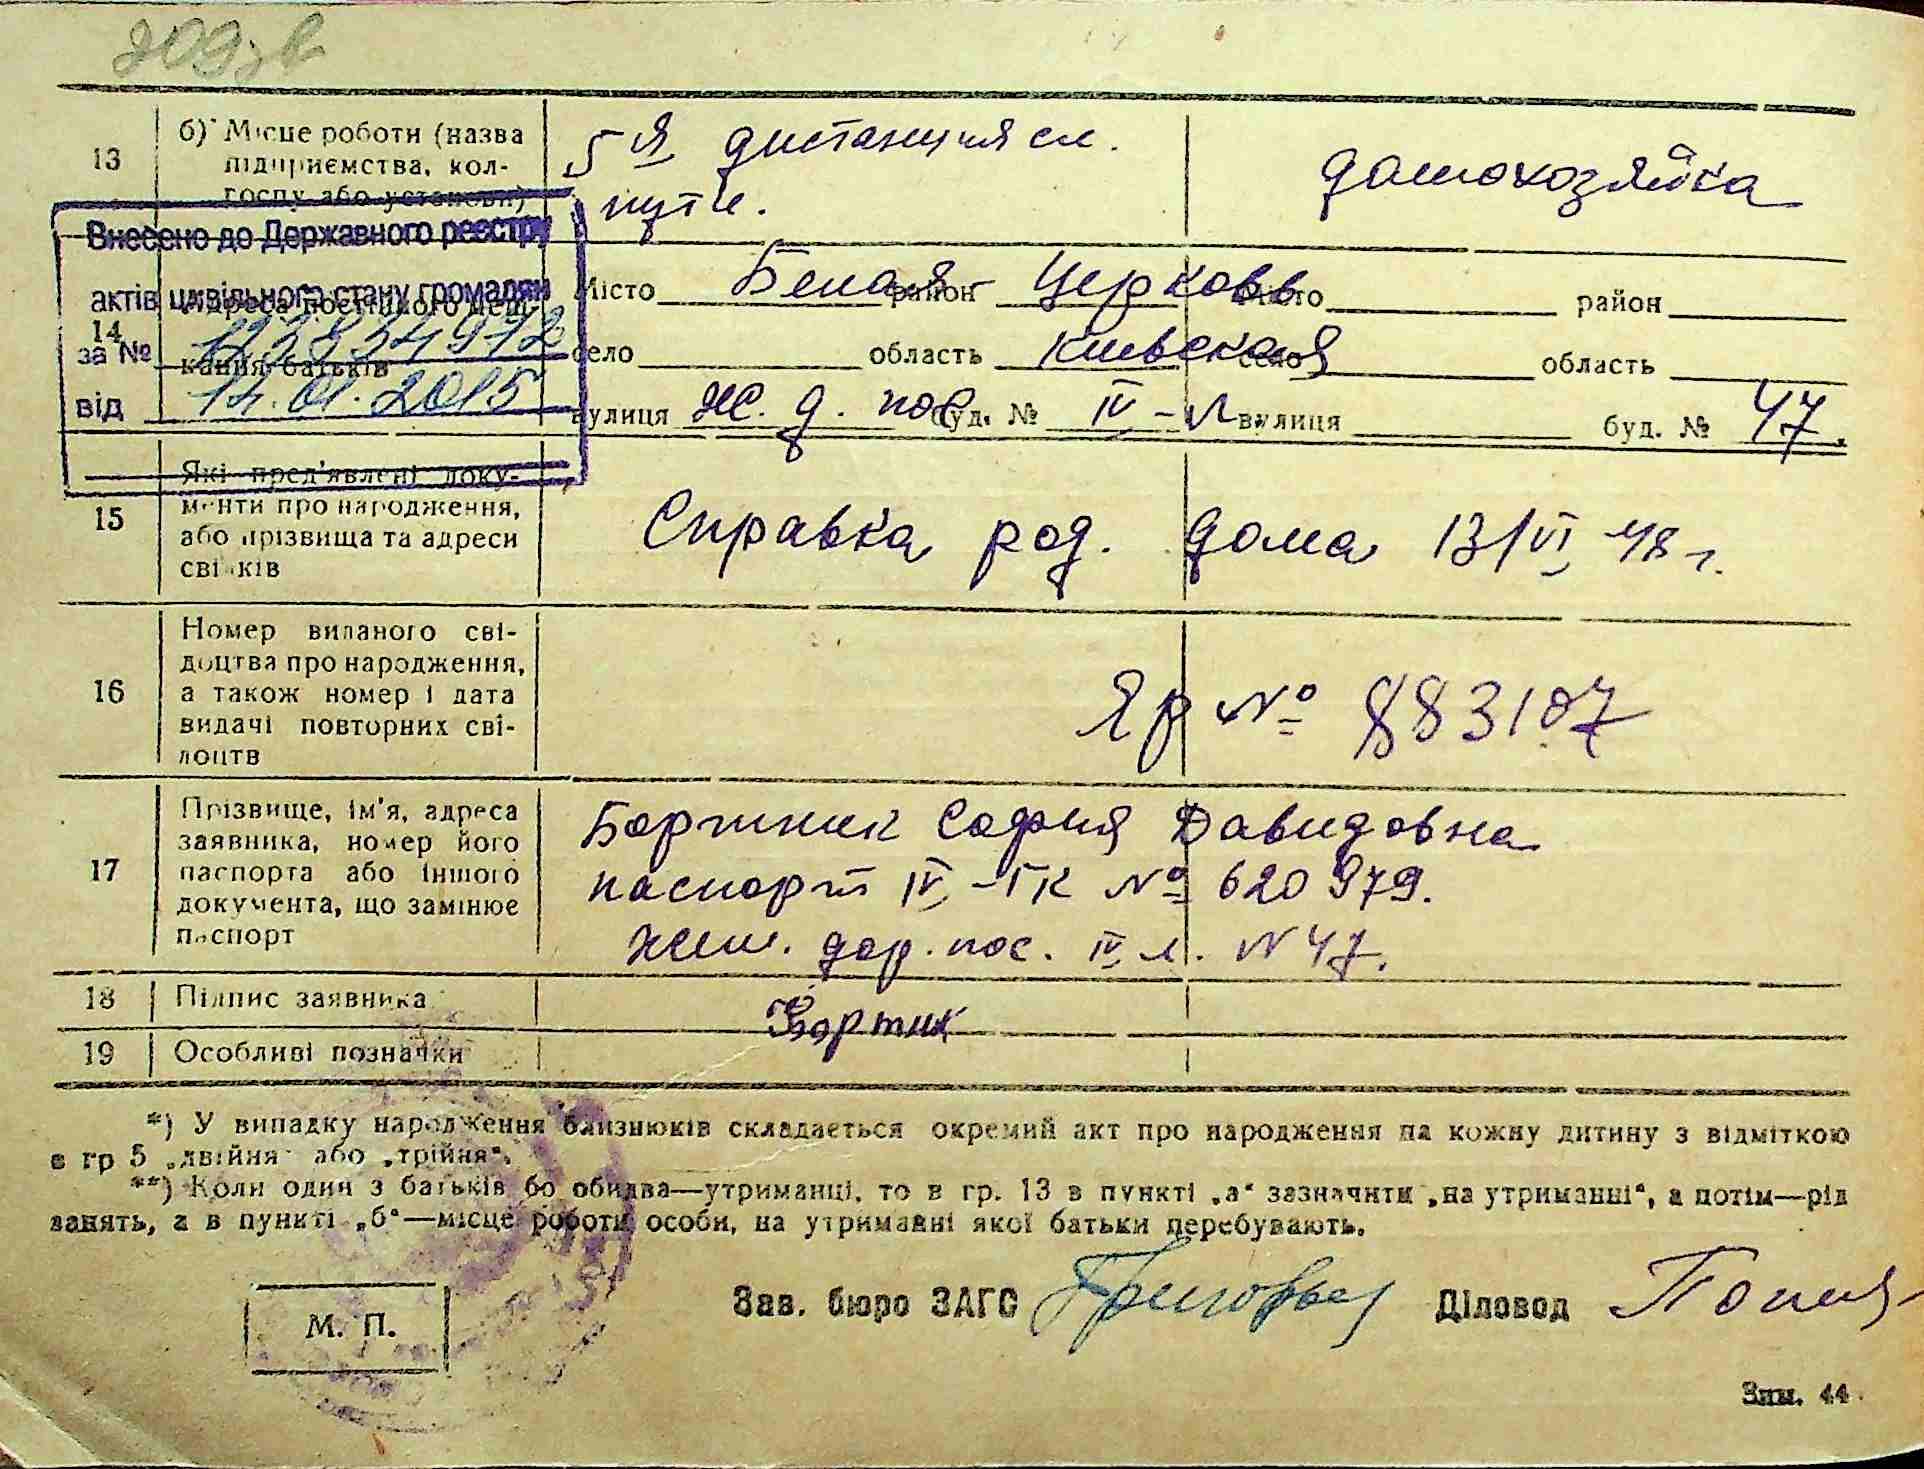 209 зв
13
б) Місце роботи (назва
підприємства, кол-
госпу або установи)
5 я дистанция сл.
пути.
домохозяйка
Внесено до Державного реєстру
актів цивільного стану громадян
за №
від 14.01.2015
14
Адреса постійного меш-
кання батьків
Місто Белая район Церковь Місто район
село область Киевская село область
вулиця Ж. д. пос буд. № IV - л вулиця буд. № 47.
15
Які пред'явлені доку-
менти про народження,
або прізвища та адреси
свідків
Справка род. дома 13/VI 48 г.
16
Номер виданого сві-
доцтва про народження,
а також номер і дата
видачі повторних сві-
доцтв
Яр № 883107
17
Прізвище, ім'я, адреса
заявника, номер його
паспорта або іншого
документа, що замінює
паспорт
София Давидовна
паспорт IV - ГК № 620979.
Жел. дор. пос. IV л. N 47.
18 Підпис заявника
19 Особливі позначки
*) У випадку народження близнюків складається окремий акт про народження на кожну дитину з відміткою
в гр 5 „двійня" або „трійня".
**) Коли один з батьків бо обидва—утриманці, то в гр. 13 в пункті „а" зазначити „на утриманні", а потім—рід
занять, а в пункті „б"—місце роботи особи, на утриманні якої батьки перебувають.
М. П.
Зав. бюро ЗАГС Діловод
Зам. 44